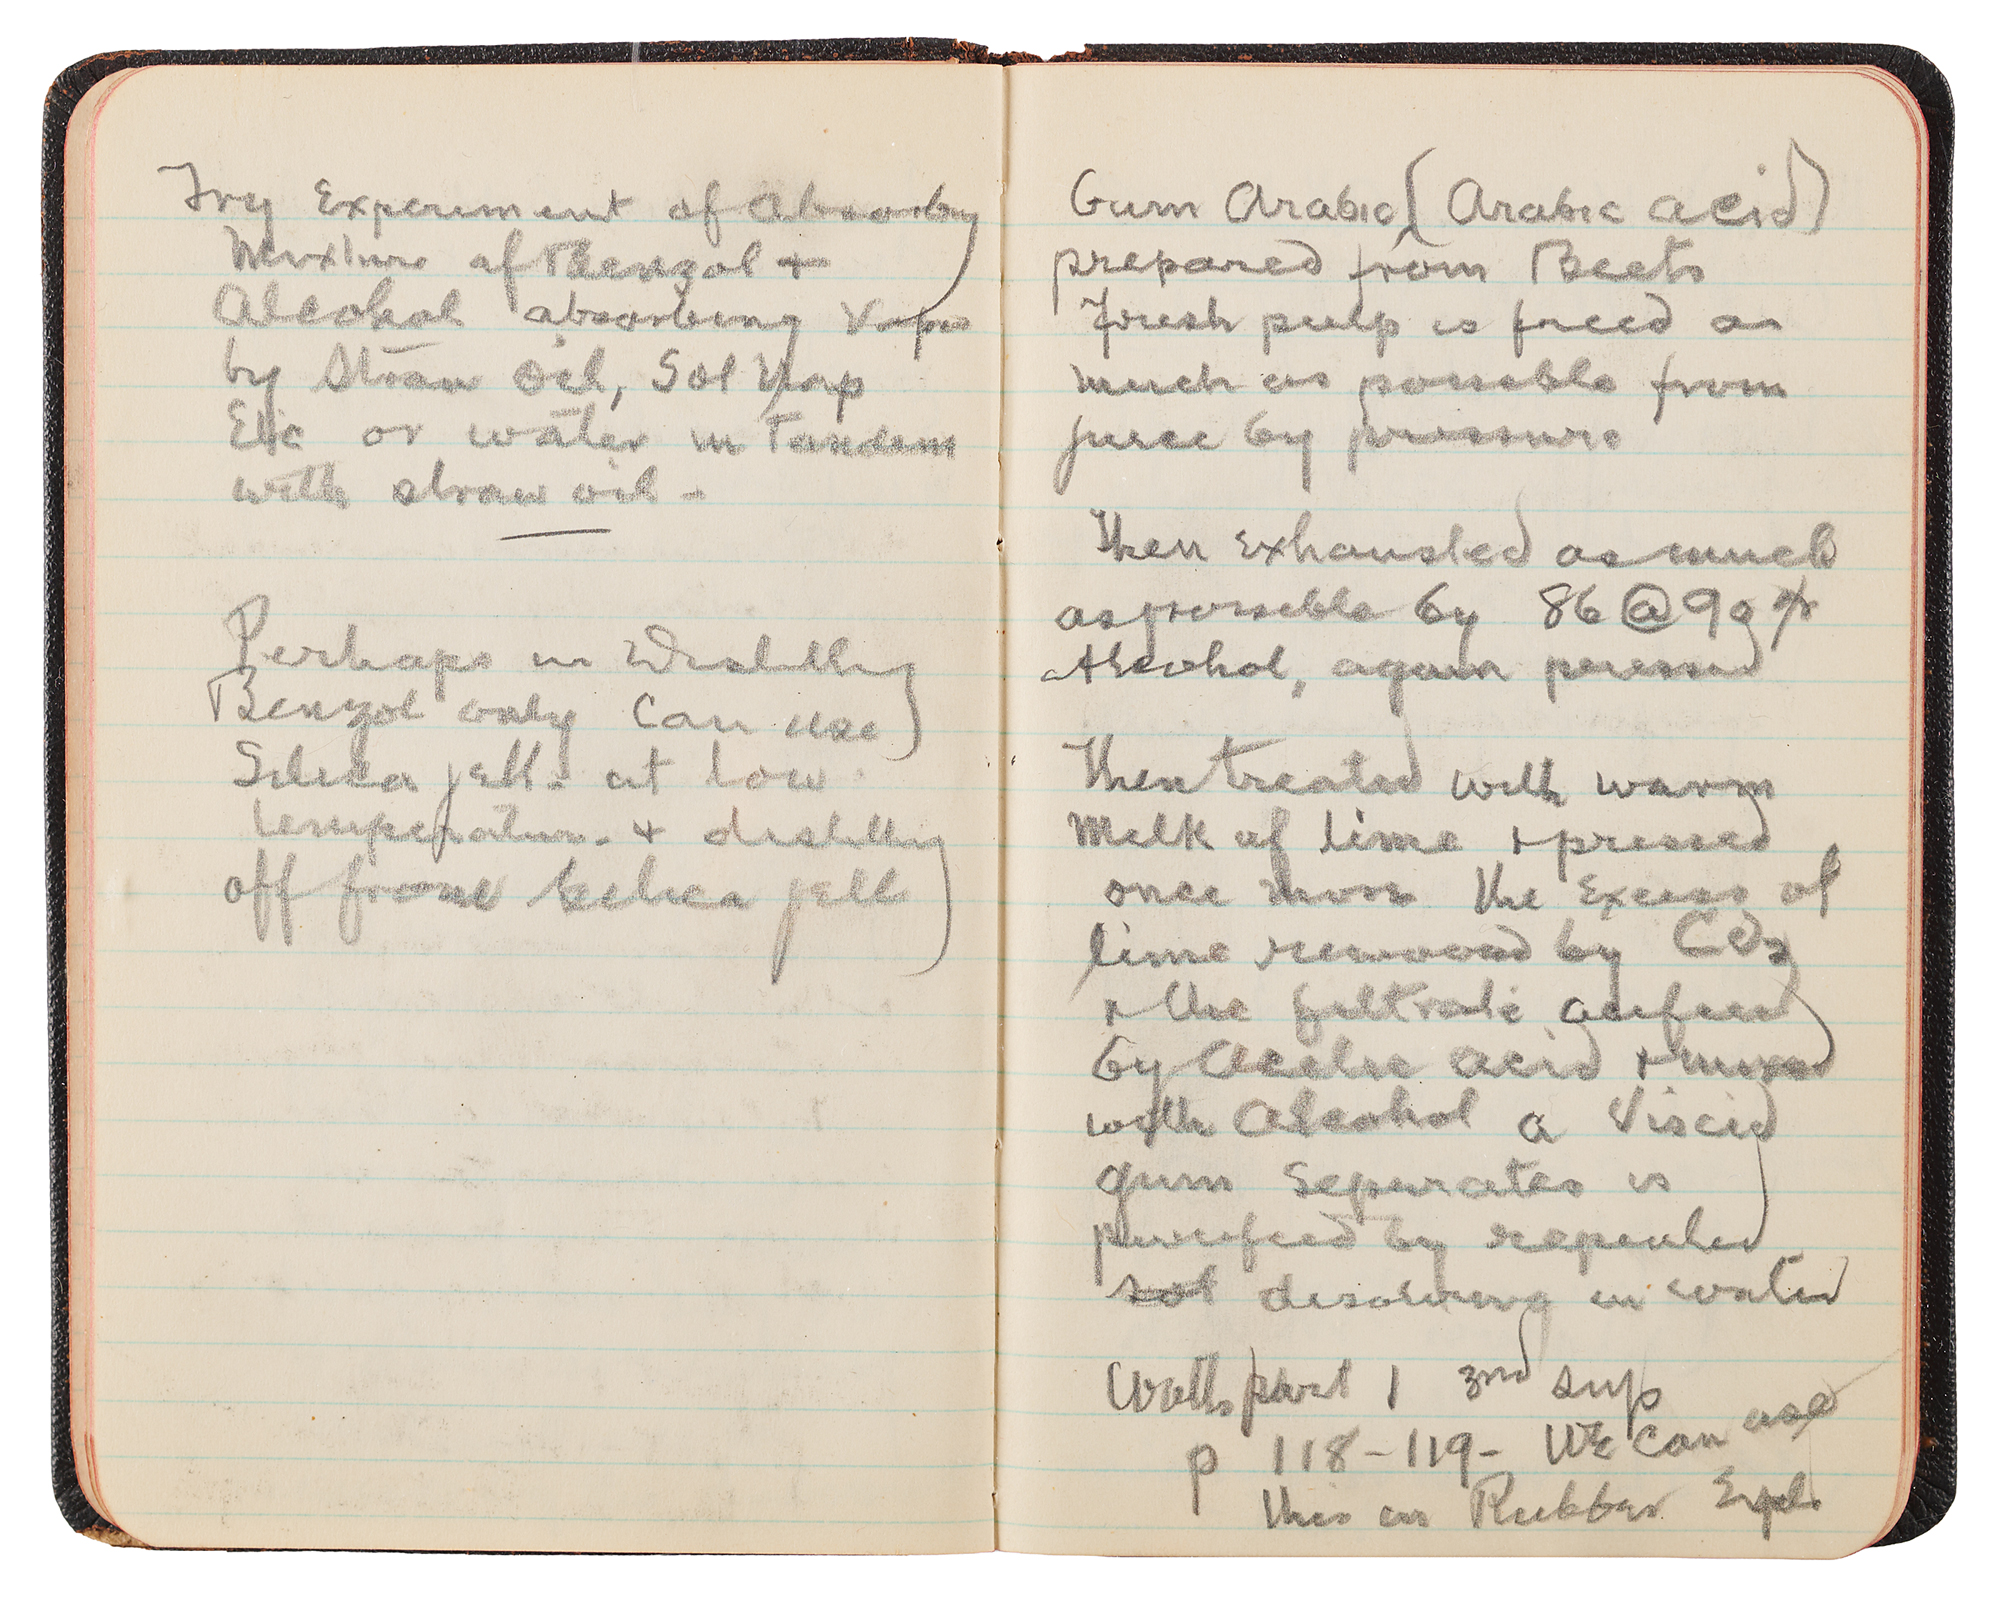 Try Experiment of Absorbg
Mixture of Benzol +
Alcohol absorbing Vapor
by Straw Oil, Sol Vap
Etc or water in Tandem
with straw oil -
Perhaps in Distilling
Benzol only Can use
Silica jell. at low
temperature. + distilling
off from Silica jell
Gum Arabic (Arabic acid)
prepared from Beets
Fresh pulp is freed as
much as possible from
juice by pressure
Then Exhausted as much
as possible by 86@90%
Alcohol, again pressed
Then treated with warm
Milk of lime + pressed
once more the Excess of
lime removed by CO2
+ the filtrate acified
by Acetic acid + mixed
with Alcohol a Viscid
gum Separates is
purified by repeated
sol disolving in water
Watts part 1 3rd Sup
p 118-119- WE Can use
this in Rubber Expts